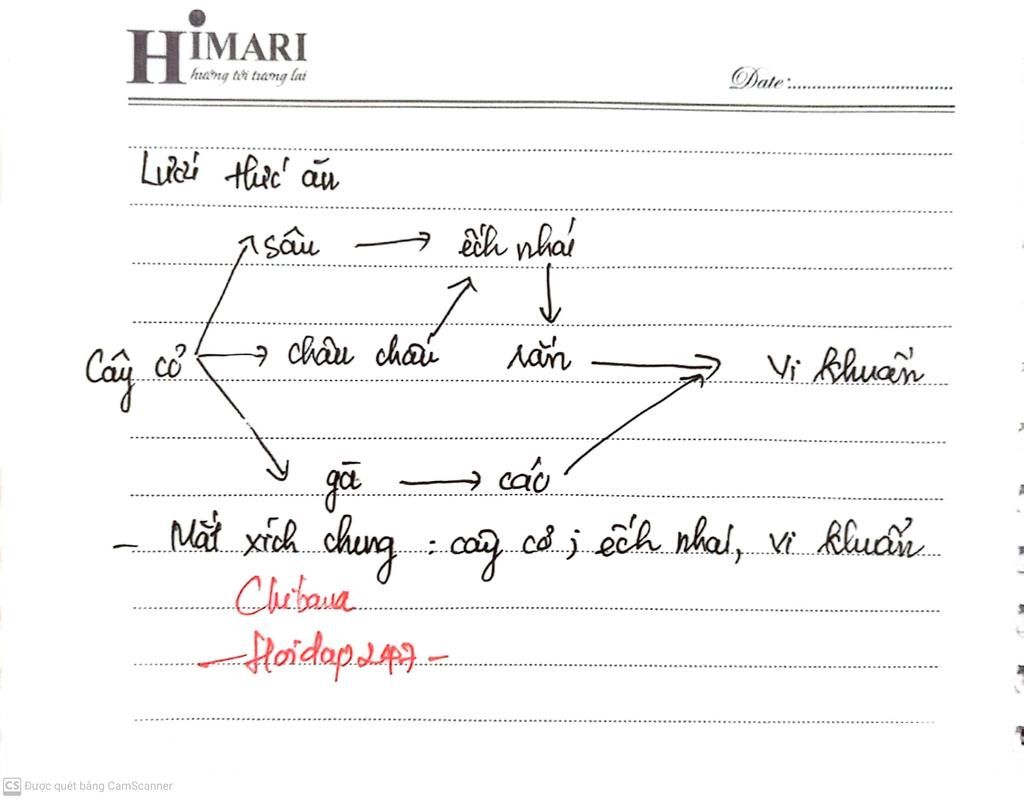 HIMARI
hướng tới tương lai
Date:
Lưới thức ăn
sâu → ếch nhái
Cây cỏ → châu chấu rắn → Vi khuẩn
gà → cáo
- Mắt xích chung : cây cỏ ; ếch nhái, vi khuẩn
Chibana
- Hoidap247 -
CS Được quét bằng CamScanner